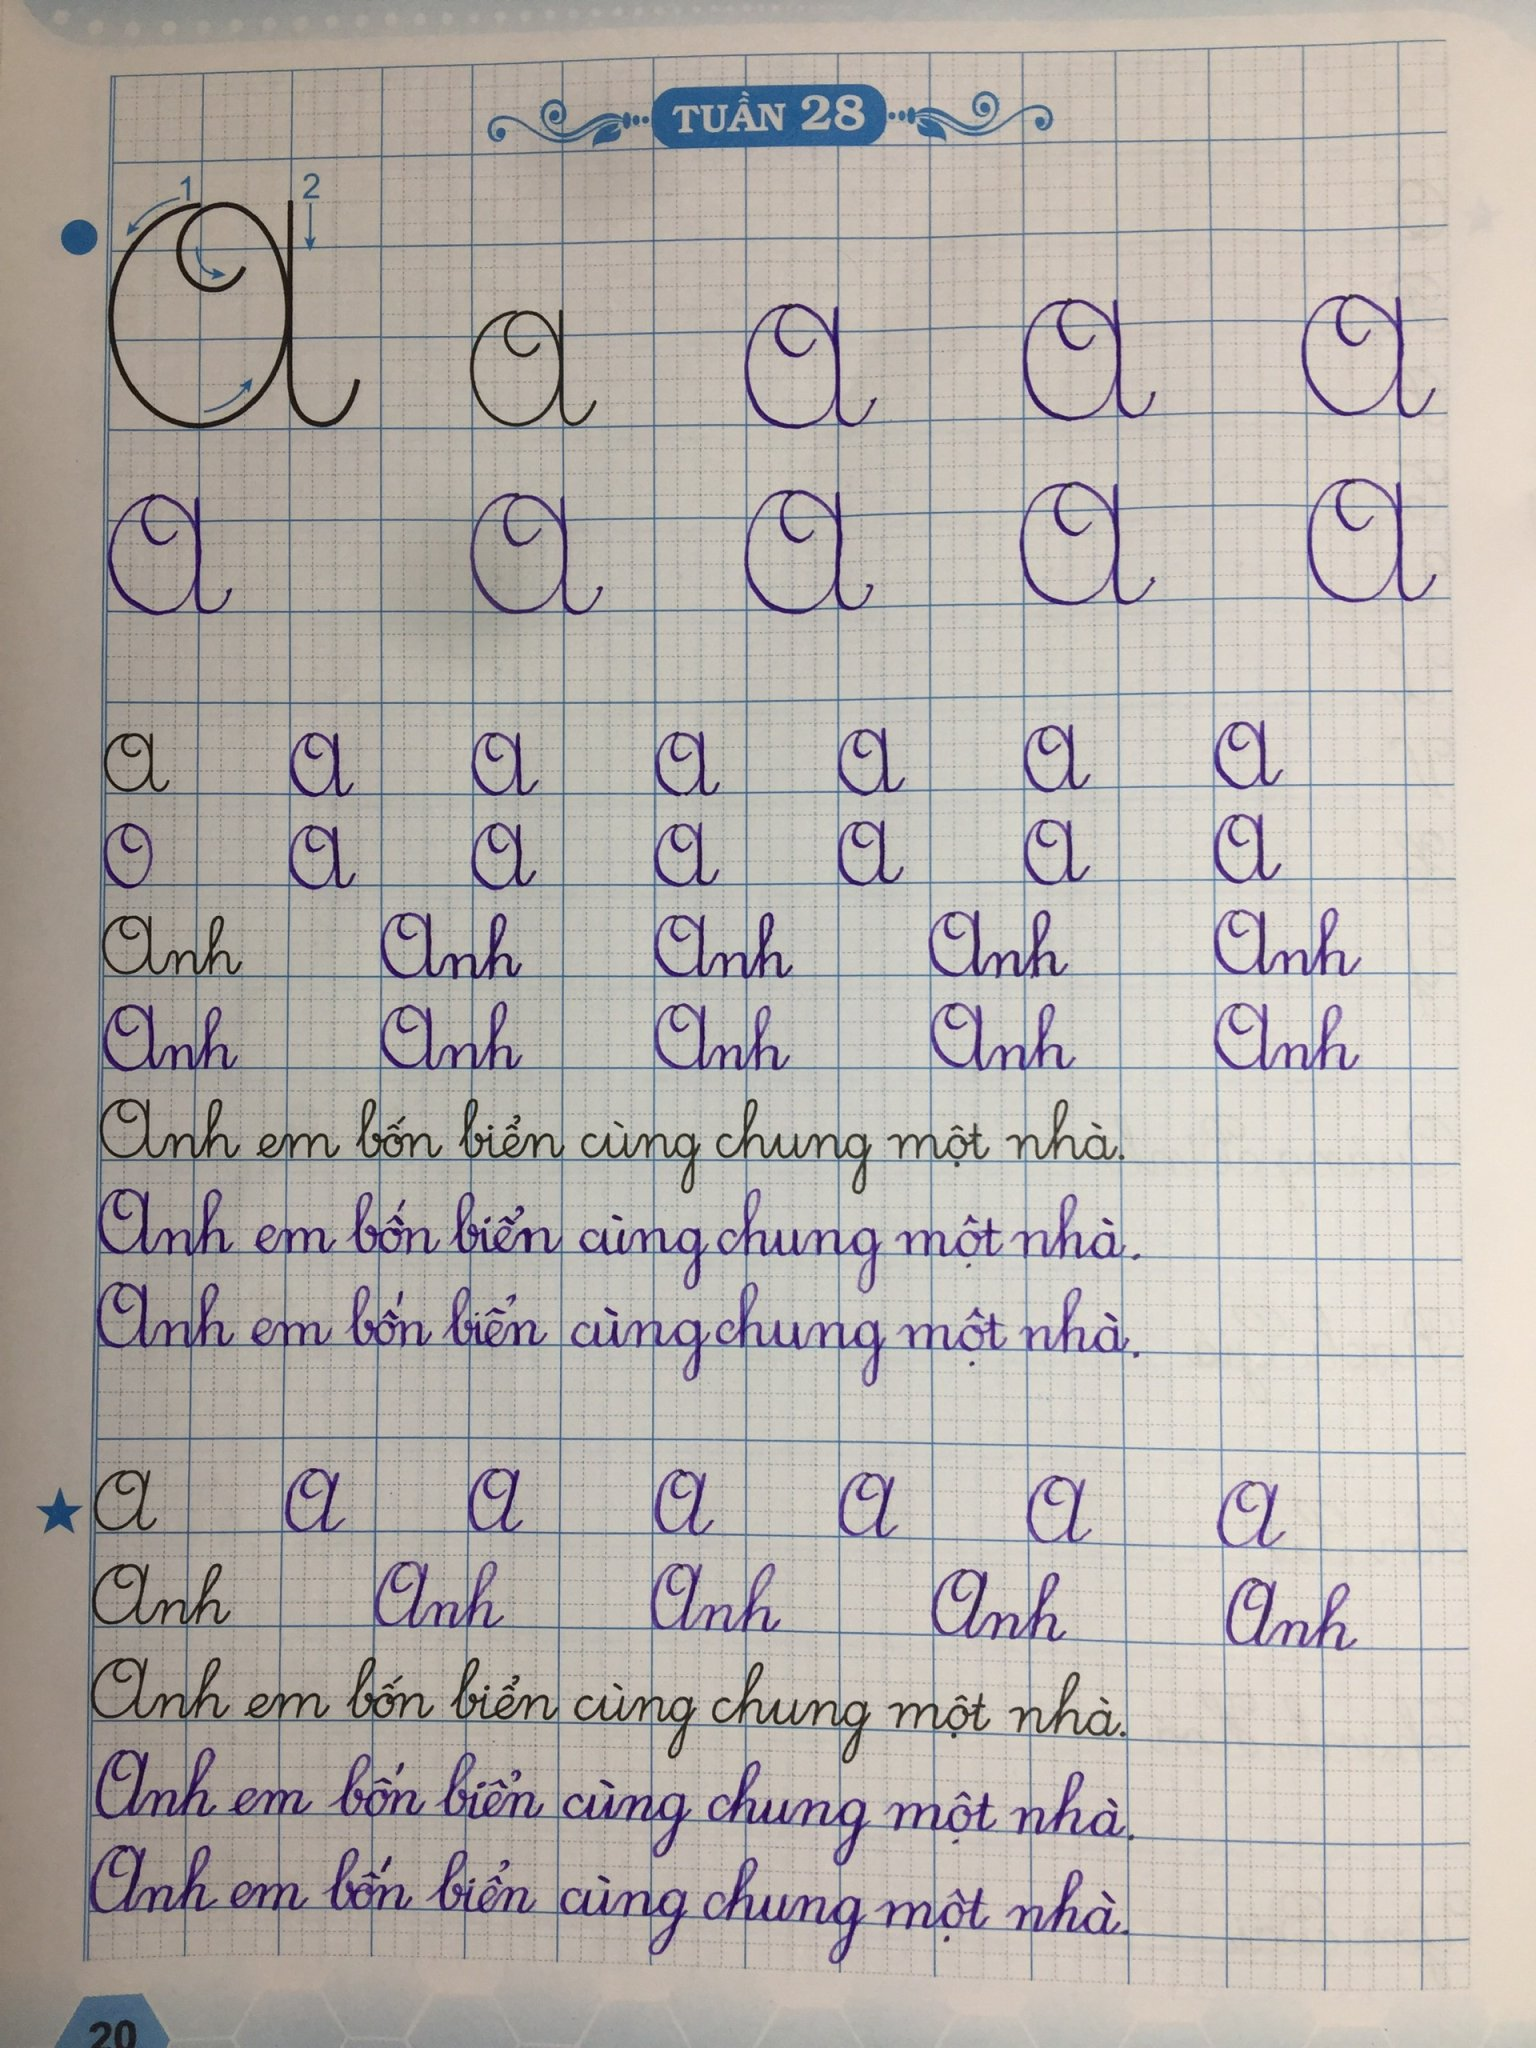 TUẦN 28
1 2
A A A A A
A A A A A
A A A A A A A
O A A A A A A
Anh Anh Anh Anh Anh
Anh Anh Anh Anh Anh
Anh em bốn biển cùng chung một nhà.
Anh em bốn biển cùng chung một nhà.
Anh em bốn biển cùng chung một nhà.
A A A A A A A
Anh Anh Anh Anh Anh
Anh em bốn biển cùng chung một nhà.
Anh em bốn biển cùng chung một nhà.
Anh em bốn biển cùng chung một nhà.
20